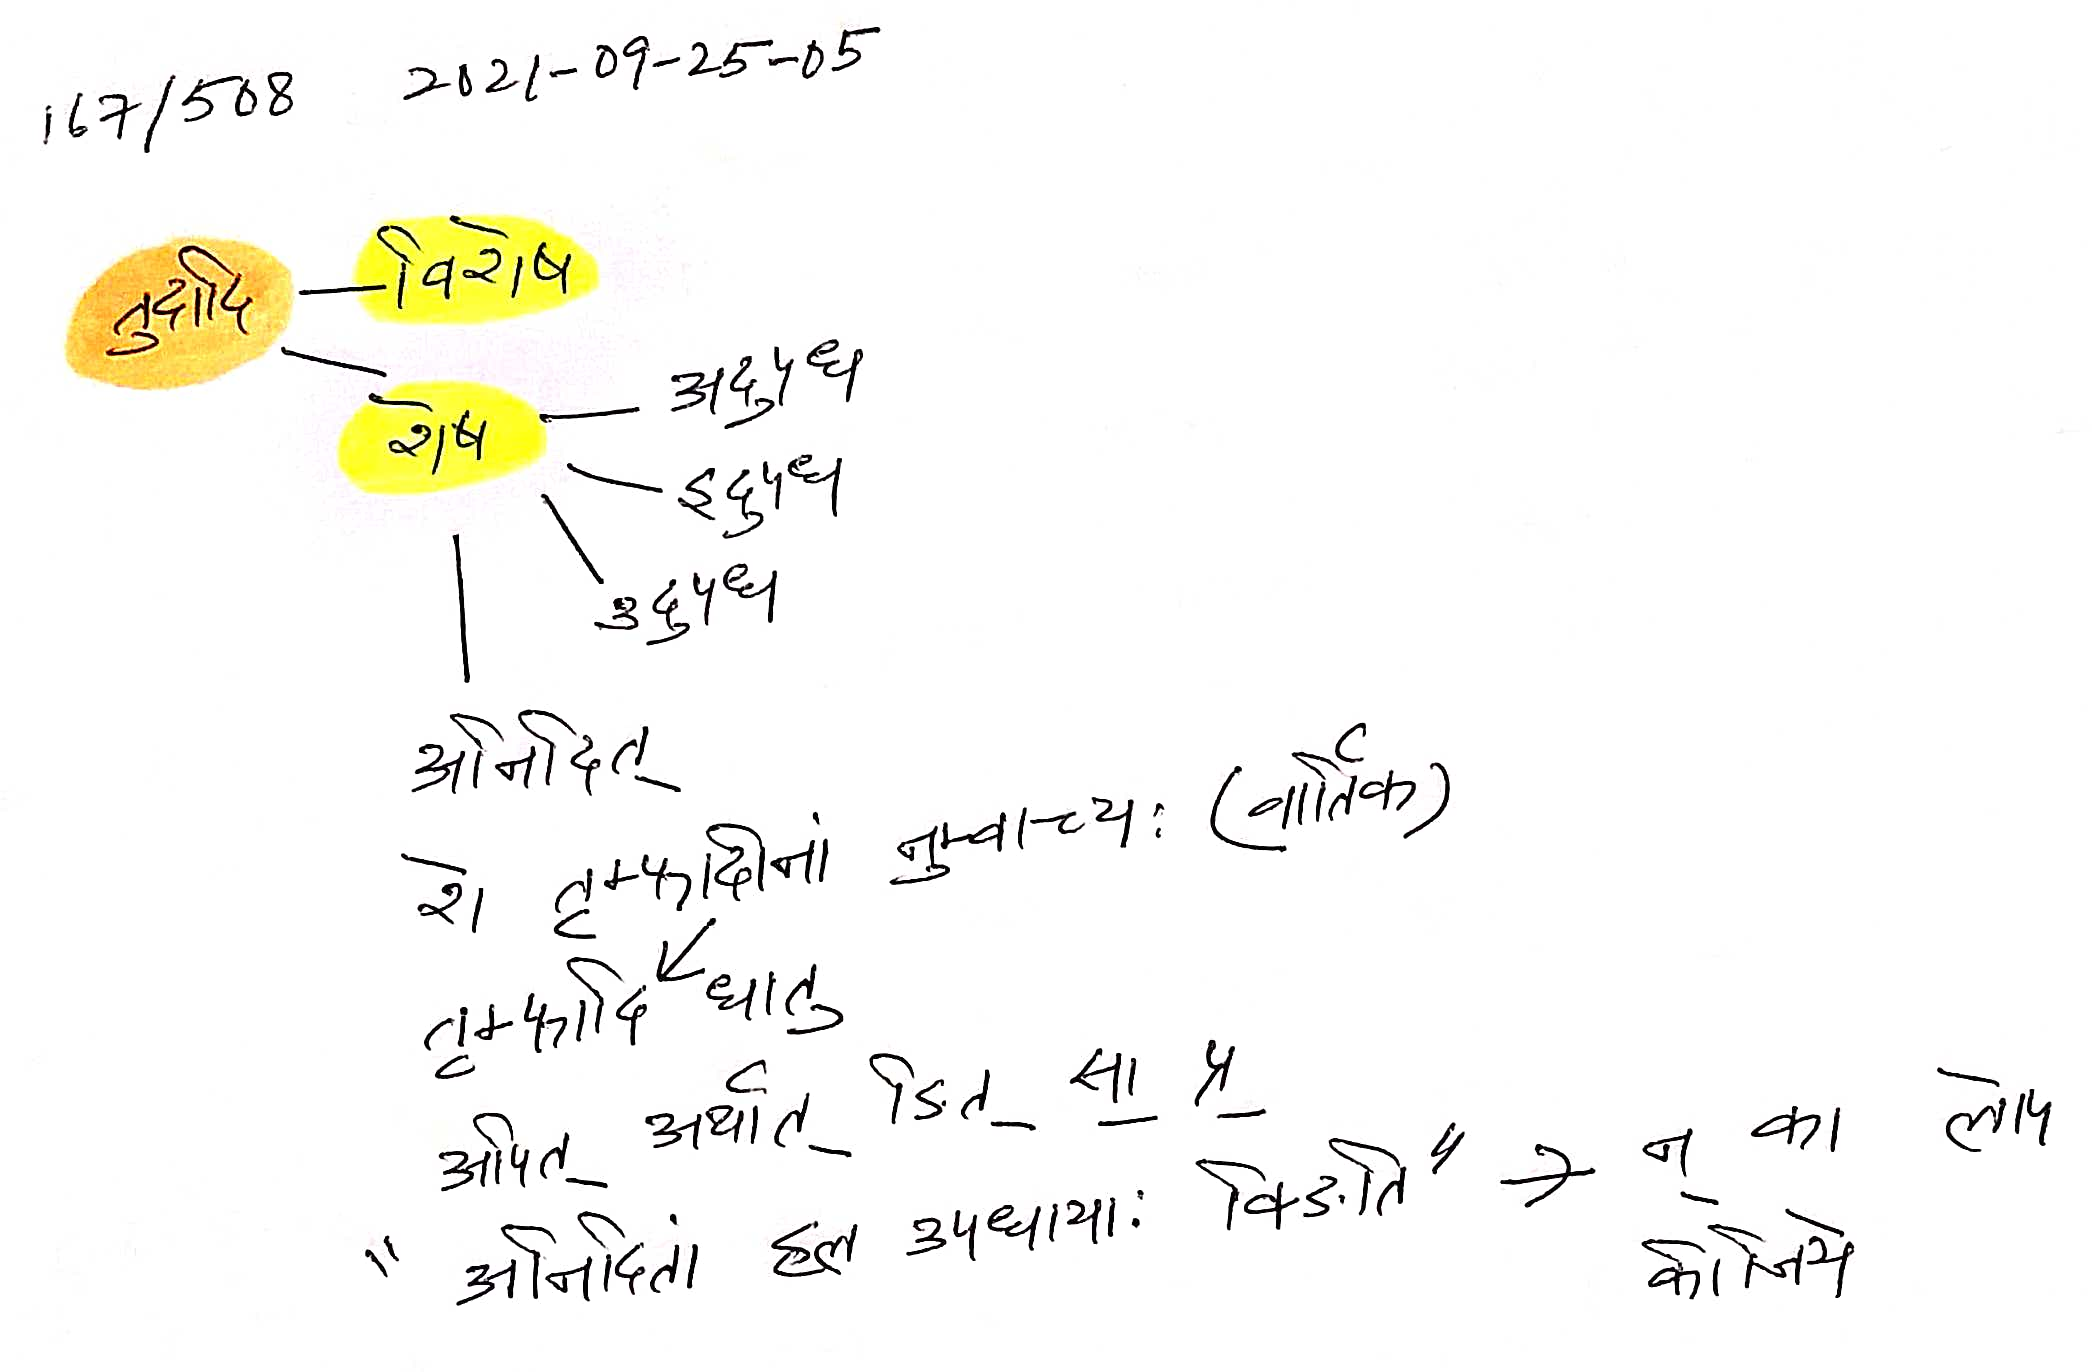 167/508 2021-09-25-05
तुदादि
विशेष
शेष
अदुपध
इदुपध
उदुपध
अनिदित्
शे तृम्फादीनां नुम्वाच्यः (वार्तिक)
तृम्फादि धातु
अपित् अर्थात् ङित् सा प्र
" अनिदितां हल उपधायाः क्ङिति " → न् का लोप
कीजिये